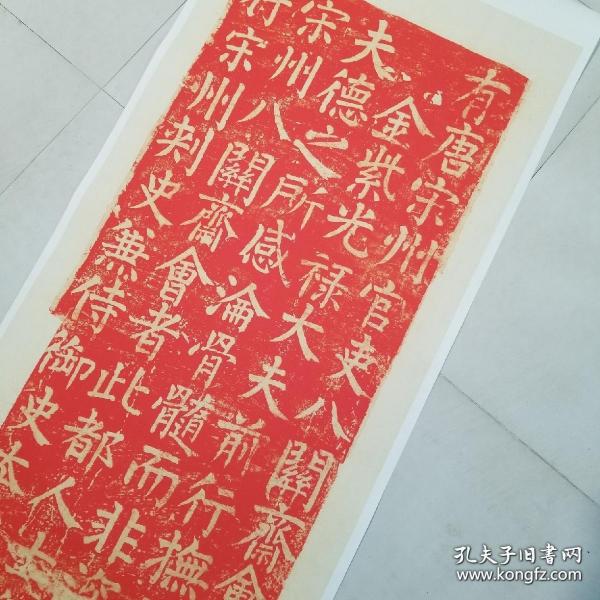 有唐宋州官吏八關齋會
金紫光祿大夫前行撫
夫德之所感淪骨髓而非
宋州八關齋會者此都人
行宋州刾史兼侍御史本
孔夫子旧书网
www.kongfz.com